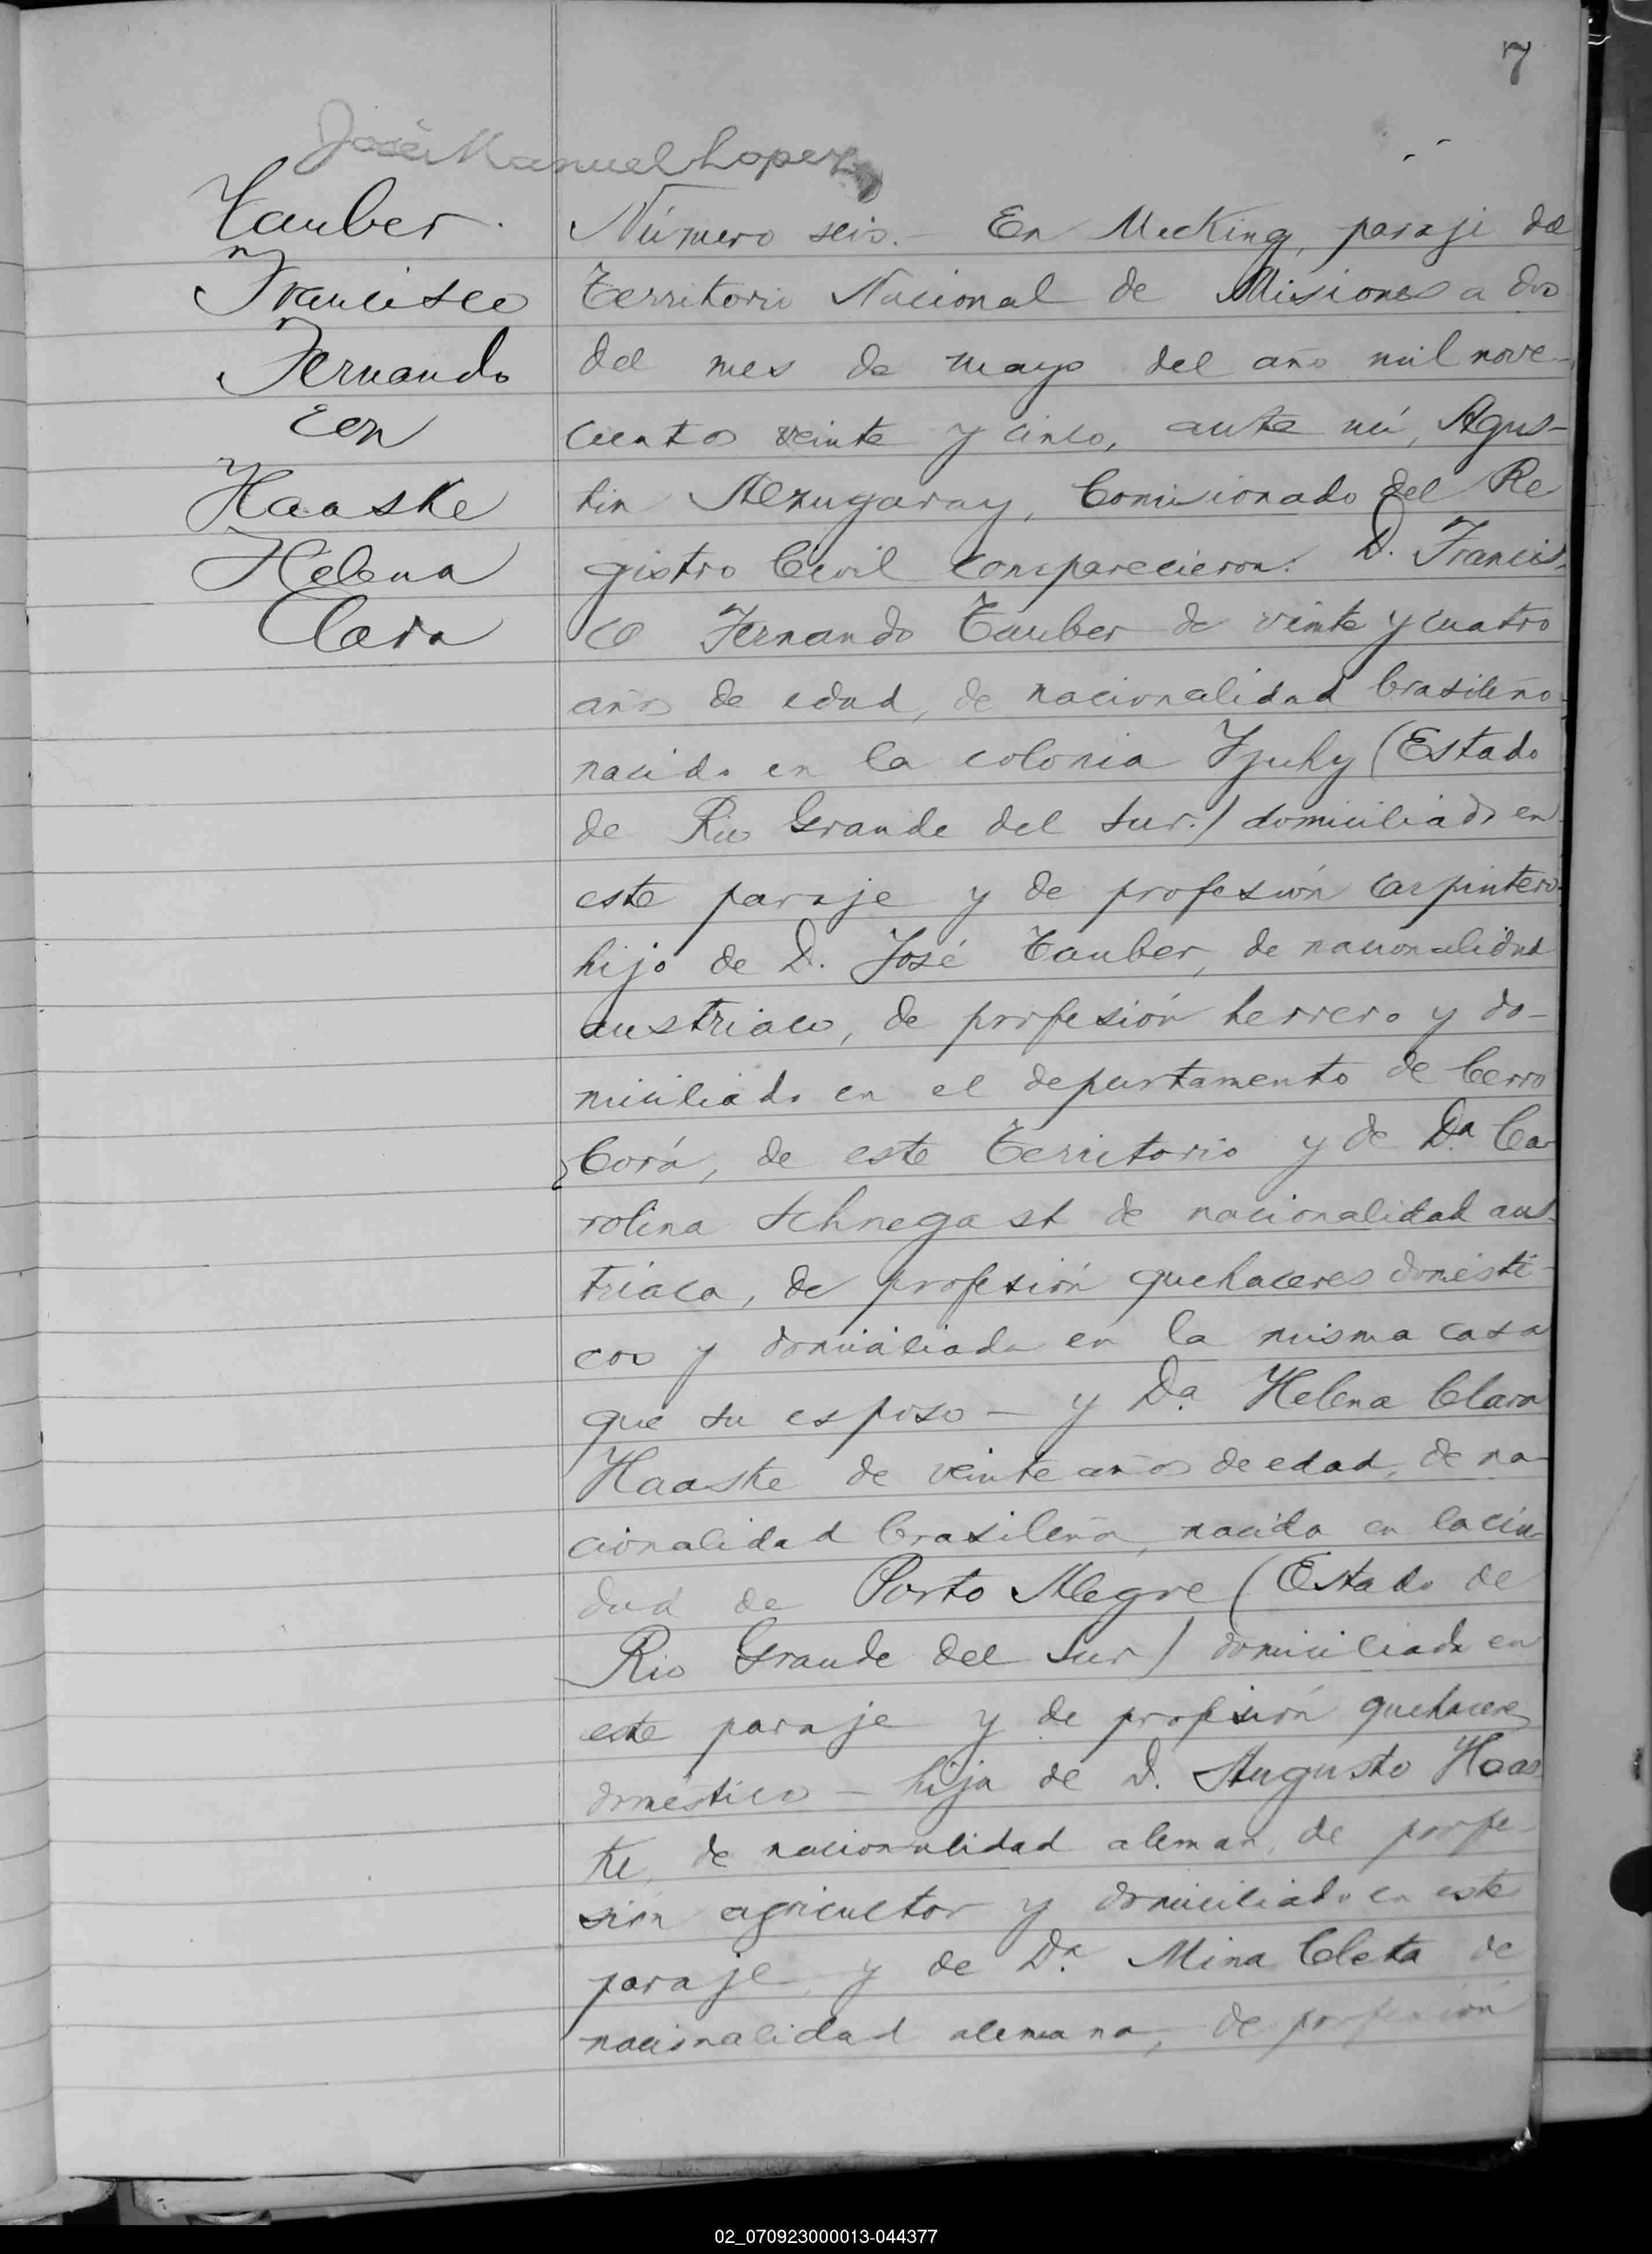 7
José Manuel Lopez
Tauber
Francisco
Fernando
con
Haaske
Helena
Clara
Número seis. – En Mecking, paraje del
Territorio Nacional de Misiones a dos
del mes de mayo del año mil nove-
cientos veinte y cinco, ante mí, Agus-
tin Alzugaray, Comisionado del Re
gistro Civil comparecieron: D. Francis-
co Fernando Tauber de veinte y cuatro
años de edad, de nacionalidad brasileño
nacido en la colonia Yjuhy (Estado
de Rio Grande del Sur.) domiciliado en
este paraje y de profesión carpintero
hijo de D. José Tauber, de nacionalidad
austriaco, de profesión herrero y do-
miciliado en el departamento de Cerro
Corá, de este Territorio y de Da. Ca-
rolina Schnegast de nacionalidad aus-
triaca, de profesión quehaceres domésti-
cos y domiciliada en la misma casa
que su esposo – y Da. Helena Clara
Haaske de veinte años de edad, de na-
cionalidad brasileña, nacida en la ciu-
dad de Porto Alegre (Estado de
Rio Grande del Sur) domiciliada en
este paraje y de profesión quehaceres
doméstico – hija de D. Augusto Haas-
ke, de nacionalidad aleman, de profe-
sión agricultor y domiciliado en este
paraje y de Da. Mina Cleta de
nacionalidad alemana, de profesión
02_070923000013-044377